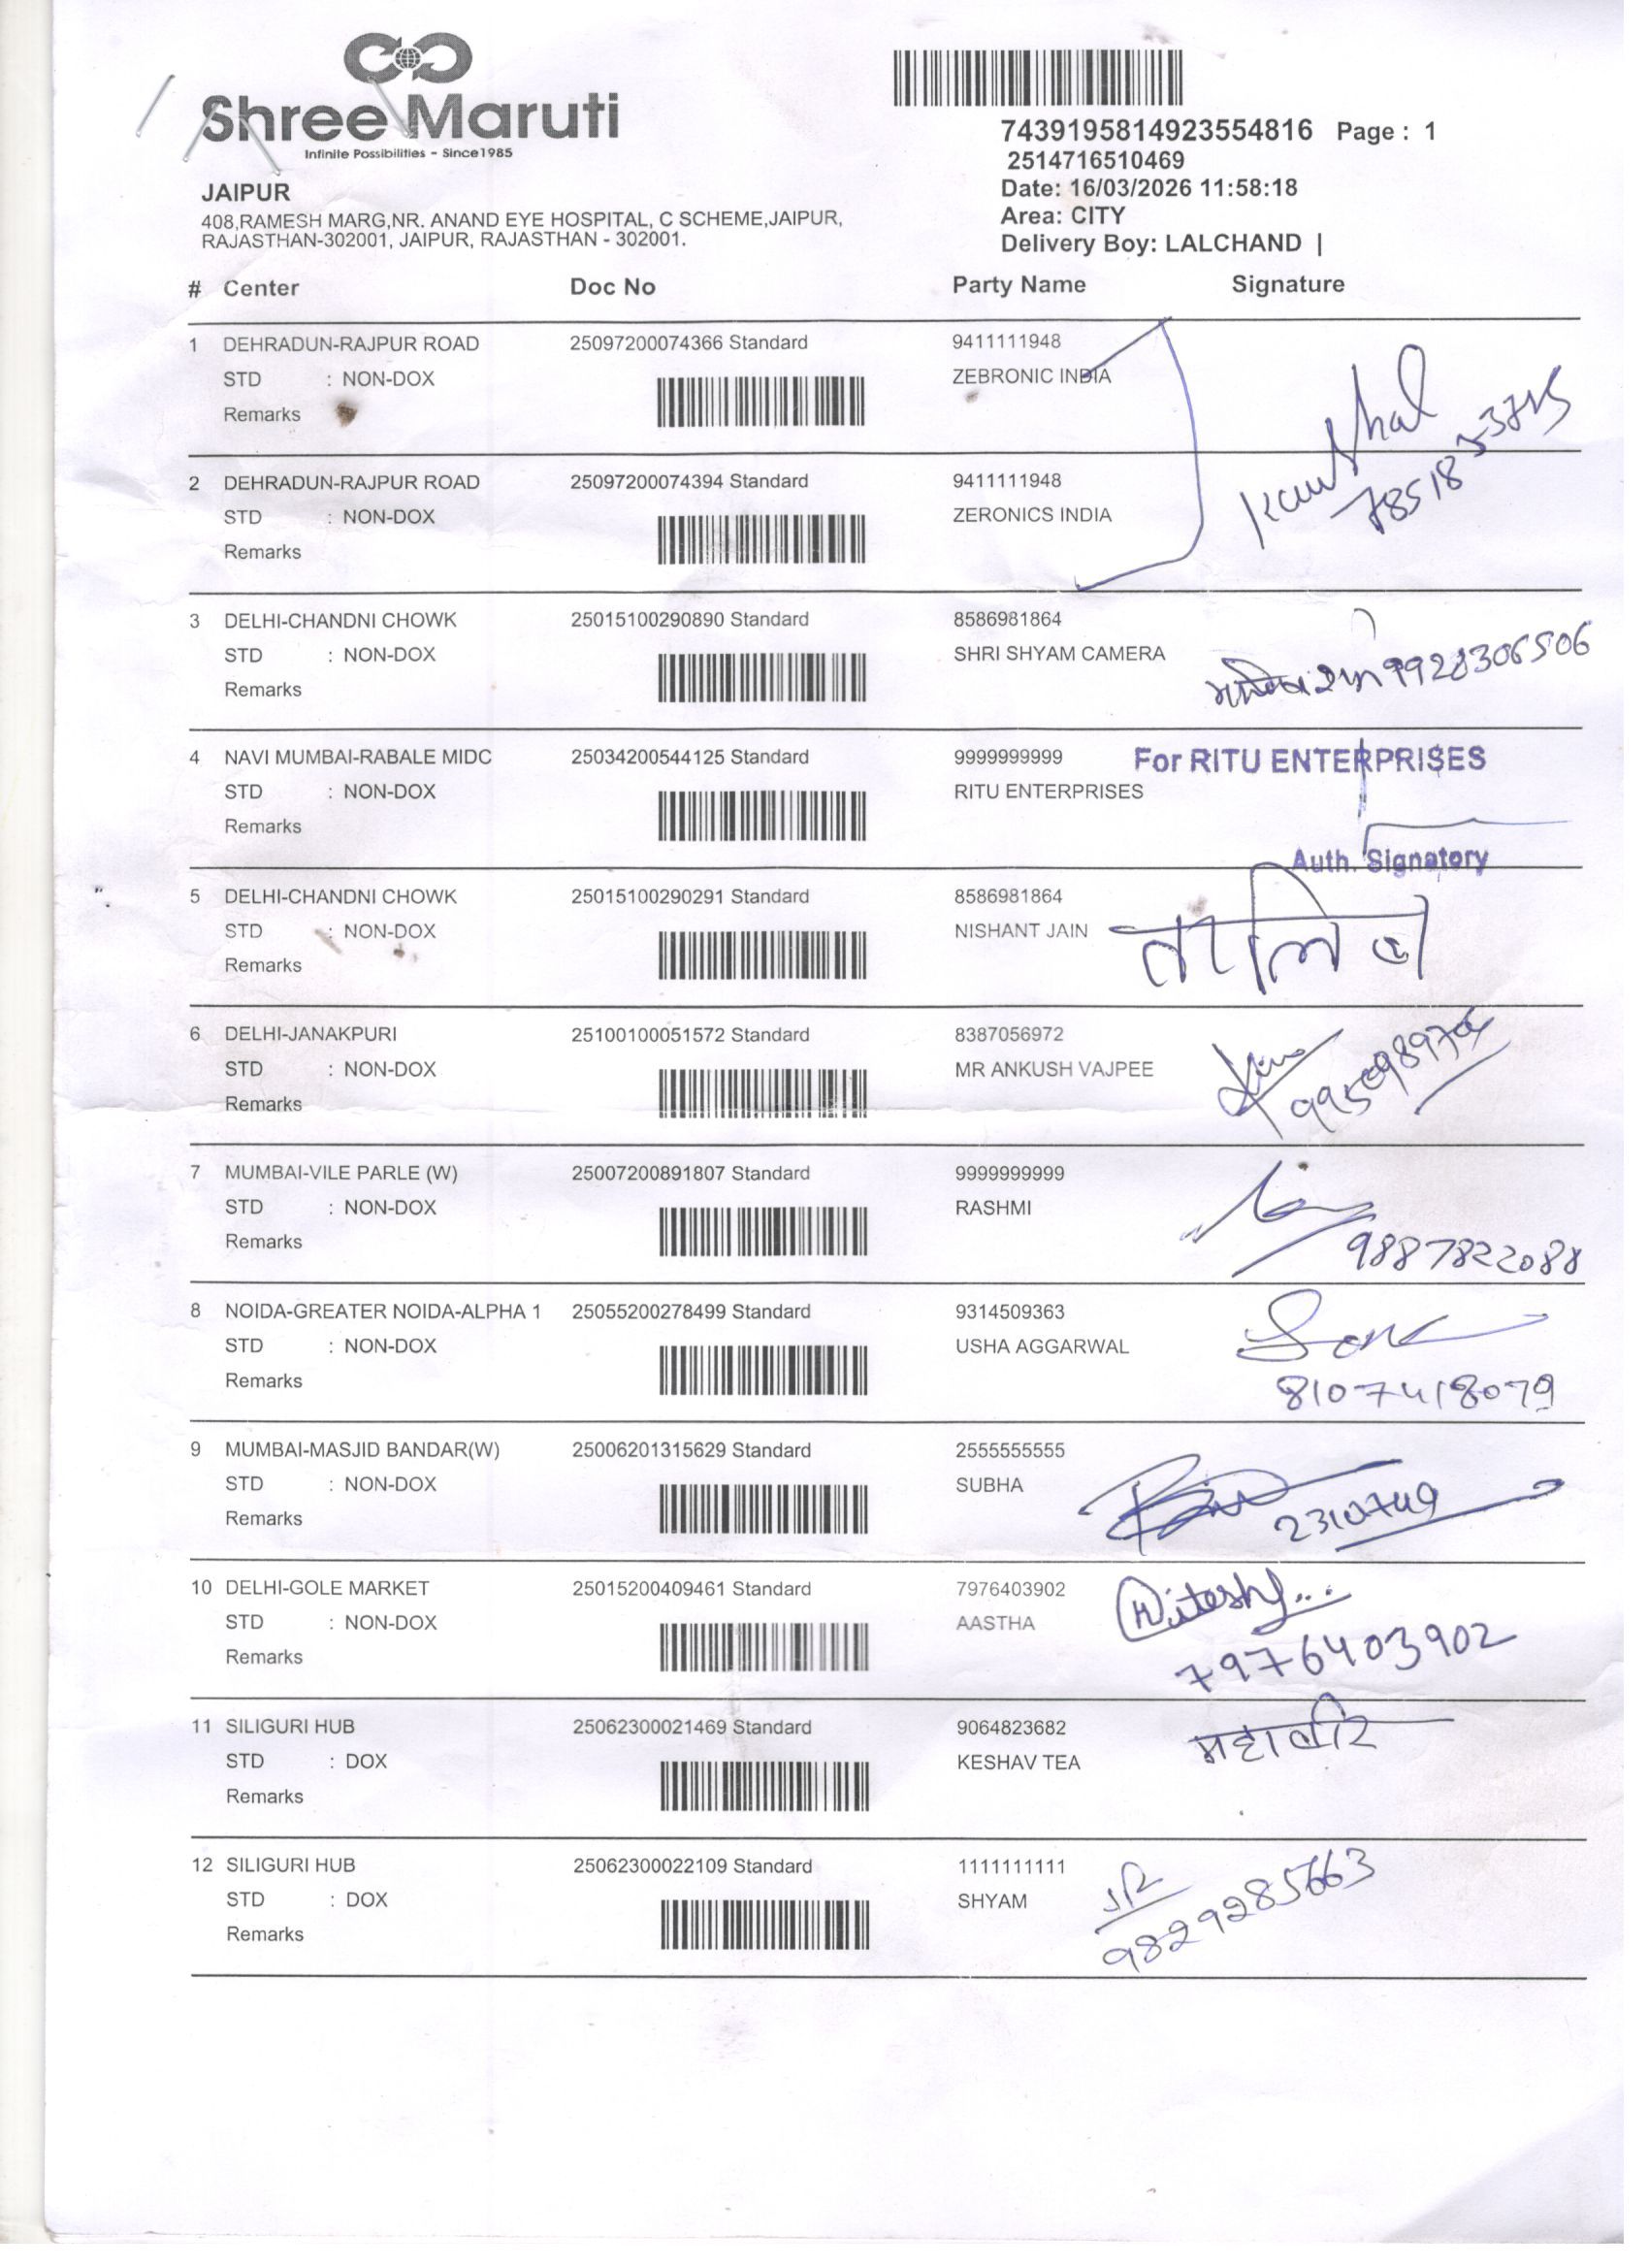 Shree Maruti
Infinite Possibilities - Since1985
7439195814923554816 Page : 1
2514716510469
Date: 16/03/2026 11:58:18
Area: CITY
Delivery Boy: LALCHAND |
JAIPUR
408,RAMESH MARG,NR. ANAND EYE HOSPITAL, C SCHEME,JAIPUR,
RAJASTHAN-302001, JAIPUR, RAJASTHAN - 302001.
# Center Doc No Party Name Signature
1 DEHRADUN-RAJPUR ROAD 25097200074366 Standard 9411111948
STD : NON-DOX ZEBRONIC INDIA
Remarks
2 DEHRADUN-RAJPUR ROAD 25097200074394 Standard 9411111948
STD : NON-DOX ZERONICS INDIA
Remarks
3 DELHI-CHANDNI CHOWK 25015100290890 Standard 8586981864
STD : NON-DOX SHRI SHYAM CAMERA
Remarks
4 NAVI MUMBAI-RABALE MIDC 25034200544125 Standard 9999999999 For RITU ENTERPRISES
STD : NON-DOX RITU ENTERPRISES
Remarks
Auth. Signatory
5 DELHI-CHANDNI CHOWK 25015100290291 Standard 8586981864
STD : NON-DOX NISHANT JAIN
Remarks
6 DELHI-JANAKPURI 25100100051572 Standard 8387056972
STD : NON-DOX MR ANKUSH VAJPEE
Remarks
7 MUMBAI-VILE PARLE (W) 25007200891807 Standard 9999999999
STD : NON-DOX RASHMI
Remarks 9887822088
8 NOIDA-GREATER NOIDA-ALPHA 1 25055200278499 Standard 9314509363
STD : NON-DOX USHA AGGARWAL
Remarks 8107418079
9 MUMBAI-MASJID BANDAR(W) 25006201315629 Standard 2555555555
STD : NON-DOX SUBHA
Remarks
10 DELHI-GOLE MARKET 25015200409461 Standard 7976403902
STD : NON-DOX AASTHA
Remarks 7976403902
11 SILIGURI HUB 25062300021469 Standard 9064823682 महावीर
STD : DOX KESHAV TEA
Remarks
12 SILIGURI HUB 25062300022109 Standard 1111111111
STD : DOX SHYAM
Remarks 9829285663